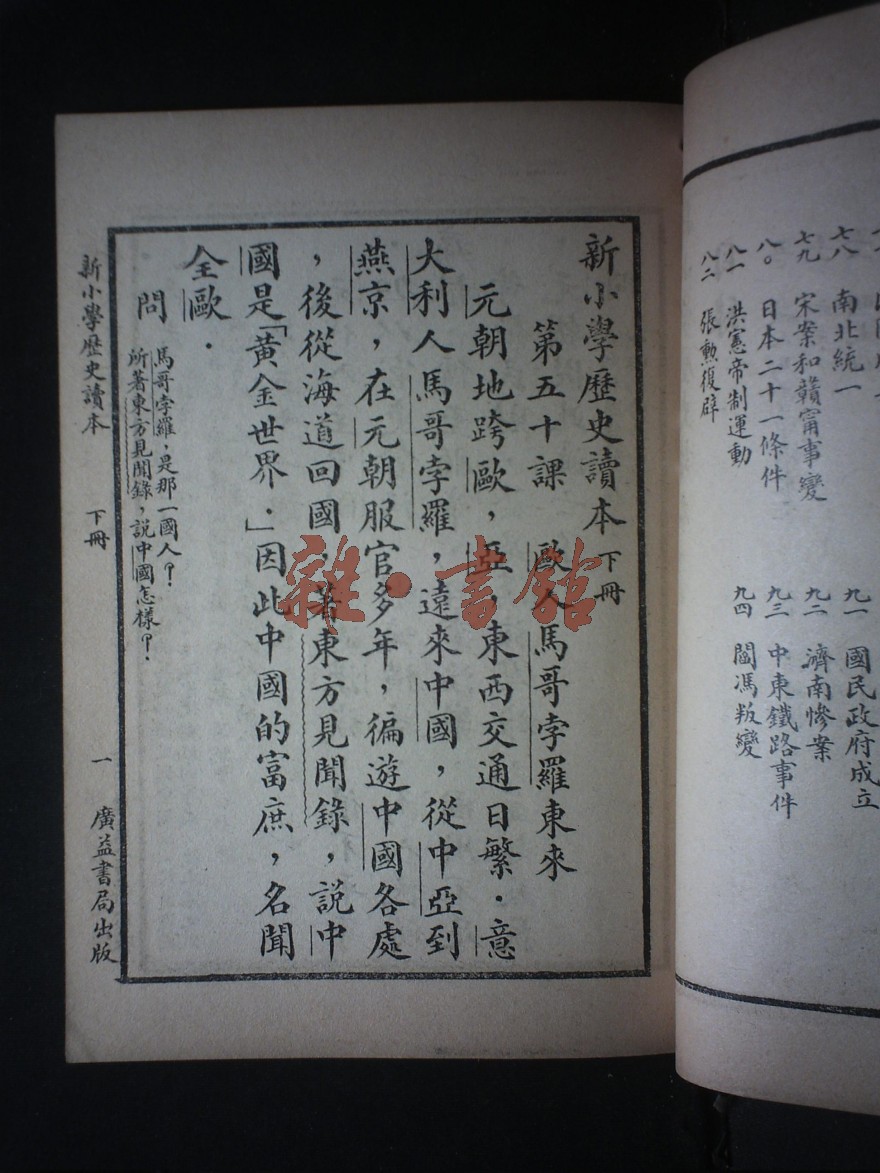 七八 南北統一
七九 宋案和贛甯事變
八〇 日本二十一條件
八一 洪憲帝制運動
八二 張勳復辟
九一 國民政府成立
九二 濟南慘案
九三 中東鐵路事件
九四 閻馮叛變
新小學歷史讀本 下冊
第五十課 歐人馬哥孛羅東來
元朝地跨歐,亞,東西交通日繁.意
大利人馬哥孛羅,遠來中國,從中亞到
燕京,在元朝服官多年,徧遊中國各處
,後從海道回國,著東方見聞錄,說中
國是「黃金世界.」因此中國的富庶,名聞
全歐.
問
馬哥孛羅,是那一國人?.
所著東方見聞錄,說中國怎樣?.
新小學歷史讀本 下冊 一 廣益書局出版
雜·書館